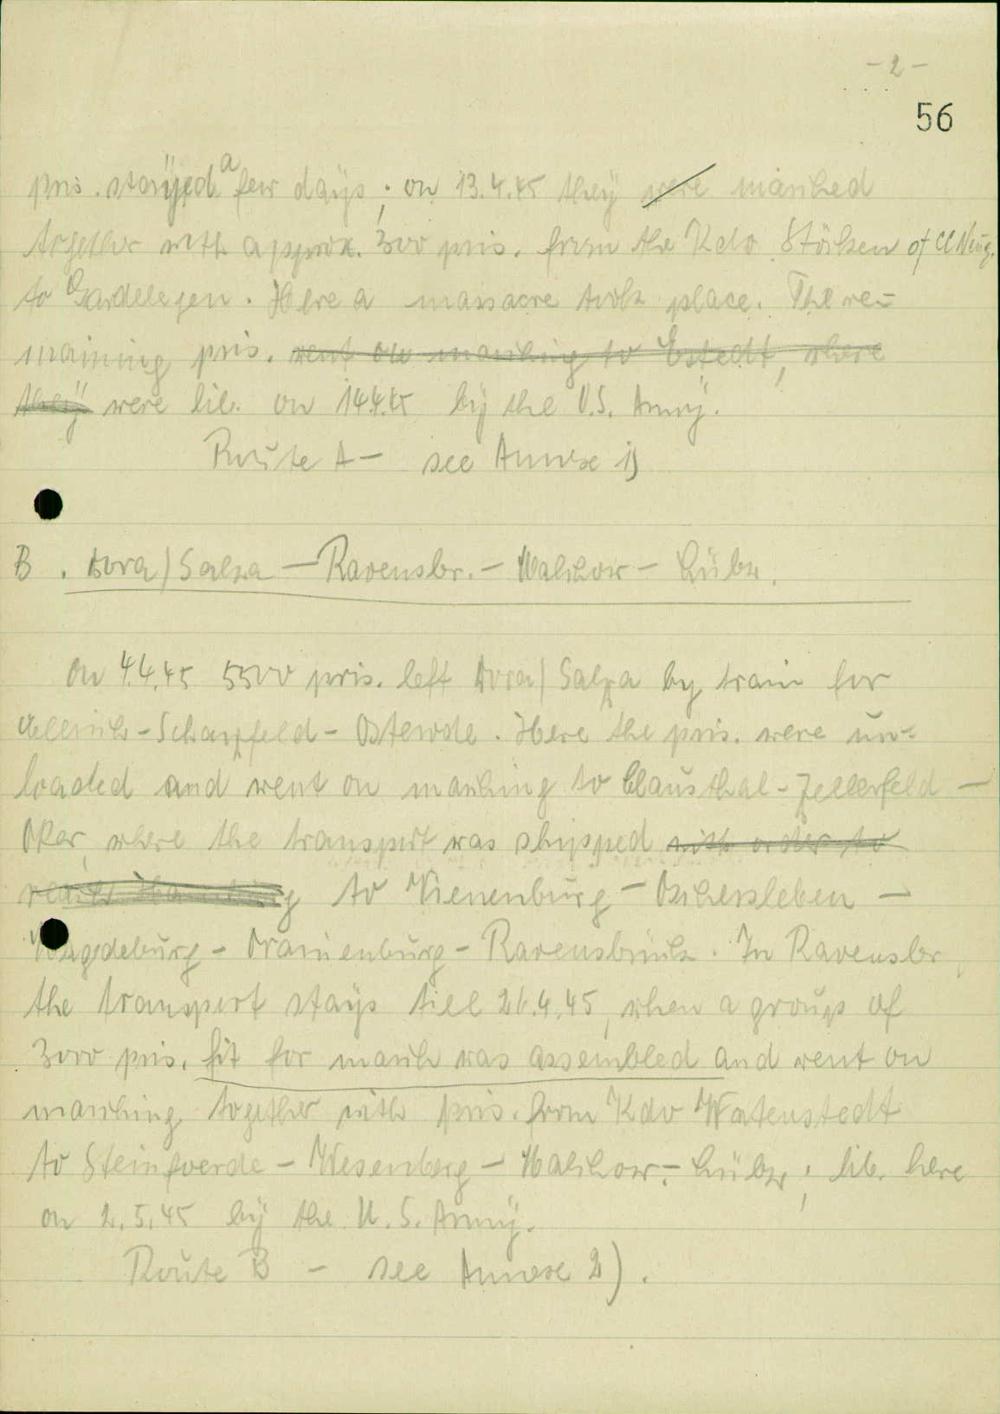 - 2 -
56
pris. stayed a few days; on 13.4.45 they were marched
together with approx. 300 pris. from the Kdo. Stöcken of CC Neug.
to Gardelegen. Here a massacre took place. The re-
maining pris. went on marching to Estedt, where
they were lib. on 14.4.45 by the U.S. Army.
Route A - see Annexe 1)
B. Dora/Salza - Ravensbr. - Malchow - Lübz.
On 4.4.45 5500 pris. left Dora/Salza by train for
Ellrich - Scharzfeld - Osterode. Here the pris. were un-
loaded and went on marching to Clausthal-Zellerfeld -
Oker, where the transport was shipped with order to
to Vienenburg - Oschersleben -
Magdeburg - Oranienburg - Ravensbrück. In Ravensbr.
the transport stays till 26.4.45, when a group of
3000 pris. fit for march was assembled and went on
marching together with pris. from Kdo Watenstedt
to Steinfoerde - Wesenberg - Malchow - Lübz; lib. here
on 2.5.45 by the U.S. Army.
Route B - see Annexe 2).